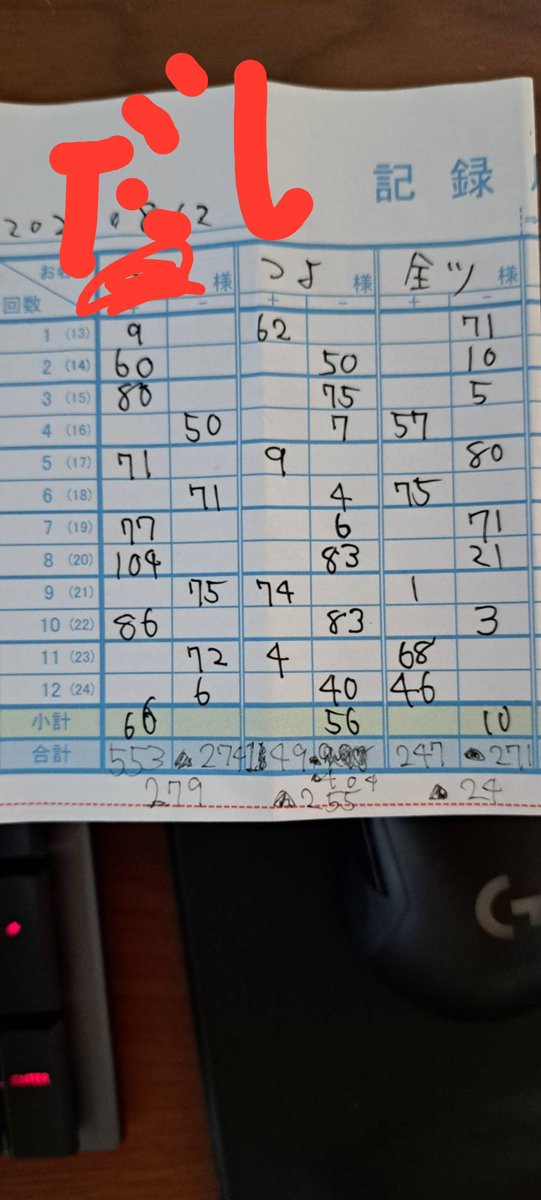 だし
記録
202 08 12
お名 様 つよ 様 全ツ
回数 + - + - + -
1 (13) 9 62 71
2 (14) 60 50 10
3 (15) 80 75 5
4 (16) 50 7 57
5 (17) 71 9 80
6 (18) 71 4 75
7 (19) 77 6 71
8 (20) 104 83 21
9 (21) 75 74 1
10 (22) 86 83 3
11 (23) 72 4 68
12 (24) 6 40 46
小計 66 56 10
合計 553 ▲274 149 247 ▲271
▲404
279 ▲255 ▲24
ENTER
G